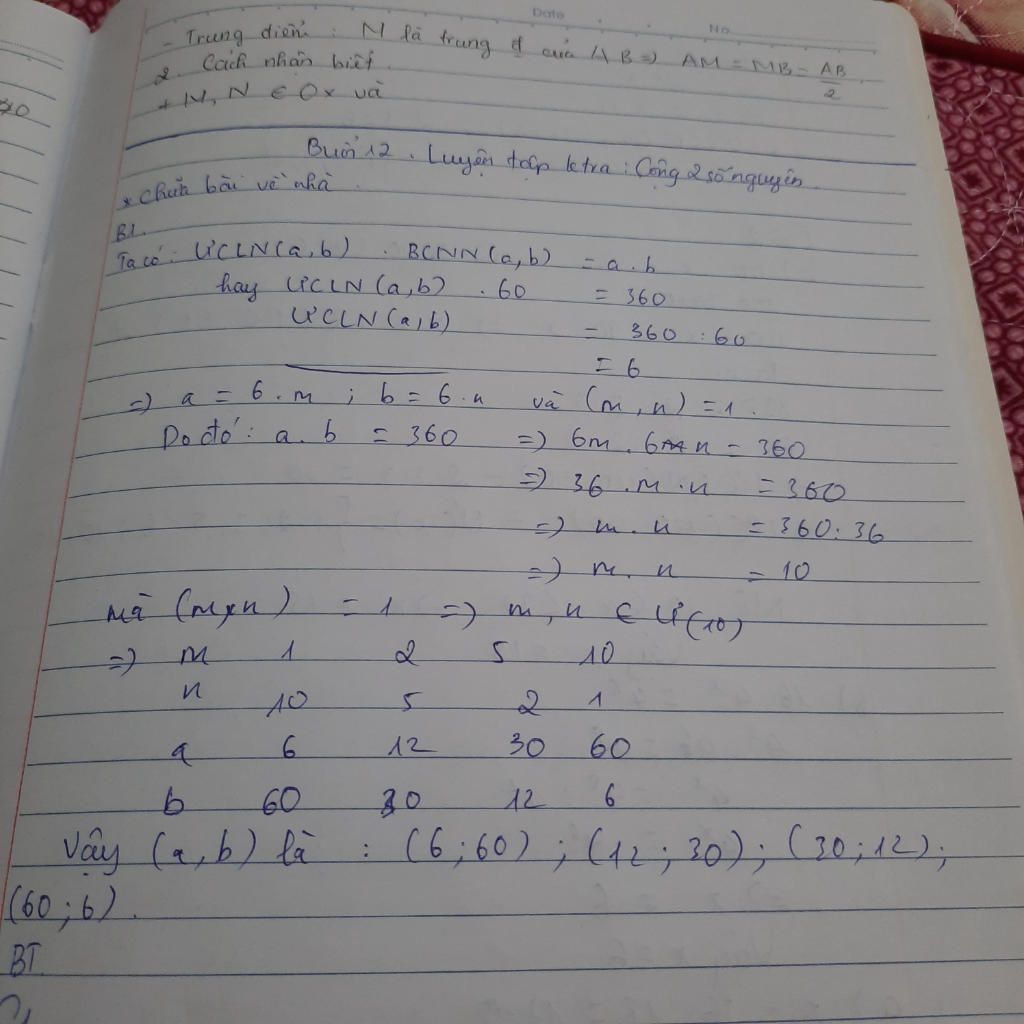 Date No
- Trung điểm : M là trung đ của AB => AM = MB = AB/2
2. Cách nhận biết
+ M, N ∈ Ox và
70
Buổi 12. Luyện tập ktra : Cộng 2 số nguyên
* Chữa bài về nhà
B1.
Ta có : ƯCLN(a,b) . BCNN(a,b) = a.b
hay ƯCLN(a,b) .60 = 360
ƯCLN(a,b) = 360 : 60
= 6
=> a = 6.m ; b = 6.n và (m,n) = 1.
Do đó : a.b = 360 => 6m . 6n = 360
=> 36 .m .n = 360
=> m.n = 360 : 36
=> m.n = 10
Mà (m,n) = 1 => m, n ∈ Ư(10)
=> m 1 2 5 10
n 10 5 2 1
a 6 12 30 60
b 60 30 12 6
Vậy (a,b) là : (6;60) ; (12;30) ; (30;12) ;
(60;6).
BT